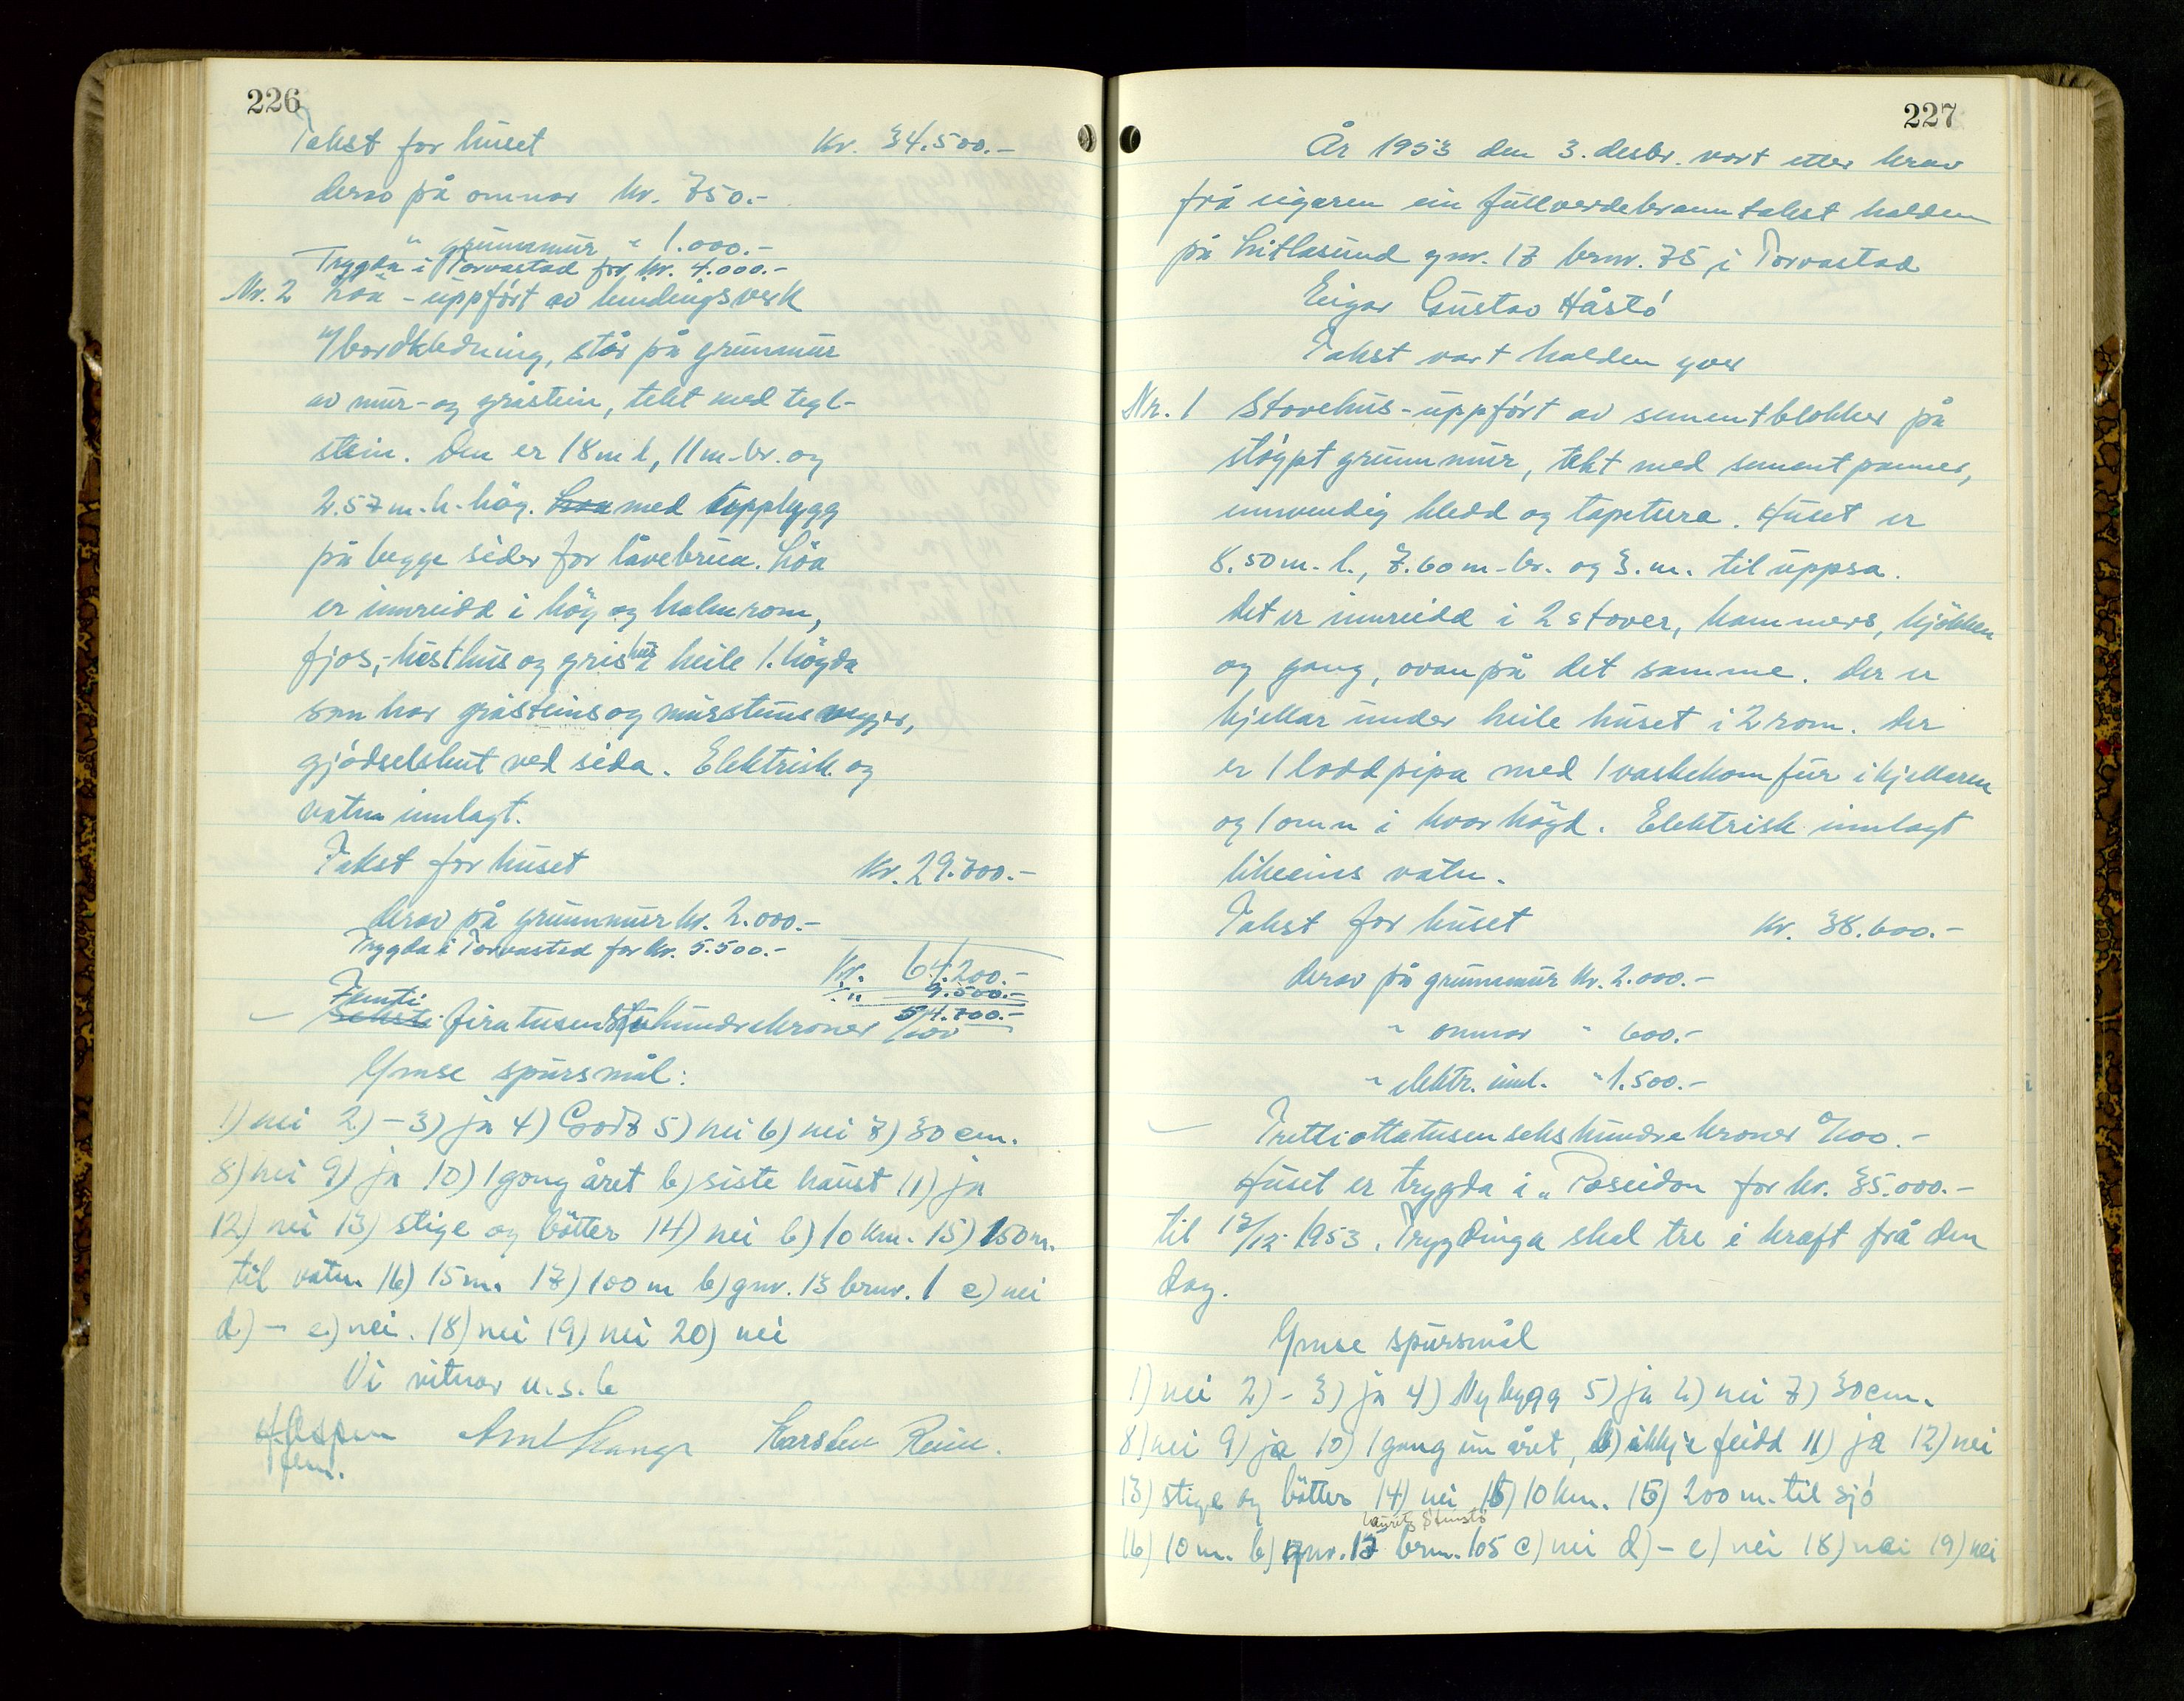 226
Takst for huset Kr. 34.500.-
derav på omnar kr. 750.-
" grunnmur " 1.000.-
Trygda i Torvastad for kr. 4.000.-
Nr. 2 Löa - uppfört av bindingsverk
m/bordkledning, står på grunnmur
av mur- og gråstein, tekt med tegl-
stein. Den er 18 m l, 11 m. br. og
2.57 m. h. hög. Löa med tuppbygg
på begge sider for låvebrua. Löa
er innreidd i höy og halmrom,
fjos,- hesthus og grishus i heile 1. högda
som har gråsteins og mursteins vegger,
gjödselshut ved sida. Elektrisk og
vatn innlagt.
Takst for huset Kr. 29.700.-
derav på grunnmur kr. 2.000.-
Trygda i Torvastad for kr. 5.500.-
Kr. 64.200.-
÷ " 9.500.-
Femti 54.700.-
Seksti firatusensjuhundrekroner /100
Ymse spursmål:
1) nei 2) - 3) ja 4) Godt 5) nei 6) nei 7) 30 cm.
8) nei 9) ja 10) 1 gong året b) siste haust 11) ja
12) nei 13) stige og bötter 14) nei b) 10 km. 15) 150 m.
til vatn. 16) 15 m. 17) 100 m b) gnr. 13 brnr. 1 c) nei
d) - e) nei. 18) nei 19) nei 20) nei
Vi vitnar u.s.b
H. Aspen Karsten Reiin.
form.
227
År 1953 den 3. desbr. vart etter krav
frå eigaren ein fullverdebranntakst halden
på Litlasund gnr. 17 brnr. 75 i Torvastad
Eigar Gustav Håstö
Takst vart halden yver
Nr. 1 Stovehus - uppfört av sementblokker på
stöypt grunnmur, tekt med sementpanner,
innvendig kledd og tapetsera. Huset er
8.50 m. l., 7.60 m. br. og 3. m. til uppsa.
Det er innreidd i 2 stover, kammers, kjökken
og gang, ovanpå det samme. Der er
kjellar under heile huset i 2 rom. Der
er 1 lodd pipa med 1 vaskekomfur i kjellaren
og 1 omn i hvar högd. Elektrisk innlagt
likeeins vatn.
Takst for huset Kr. 38.600.-
derav på grunnmur kr. 2.000.-
" omnar " 600.-
" elektr. innl. " 1.500.-
Trettiottatusensekshundrekroner 0/100.-
Huset er trygda i „Poseidon for kr. 35.000.-
til 17/12. 1953. Trygdinga skal tre i kraft frå den
dag.
Ymse spursmål
1) nei 2) - 3) ja 4) Nybygg 5) ja 6) nei 7) 30 cm.
8) nei 9) ja 10) 1 gong um året, b) ikkje feidd 11) ja 12) nei
13) stige og bötter 14) nei b) 10 km. 15) 200 m. til sjö
Lauritz
16) 10 m. b) gnr. 17 brnr. 105 c) nei d) - e) nei 18) nei 19) nei